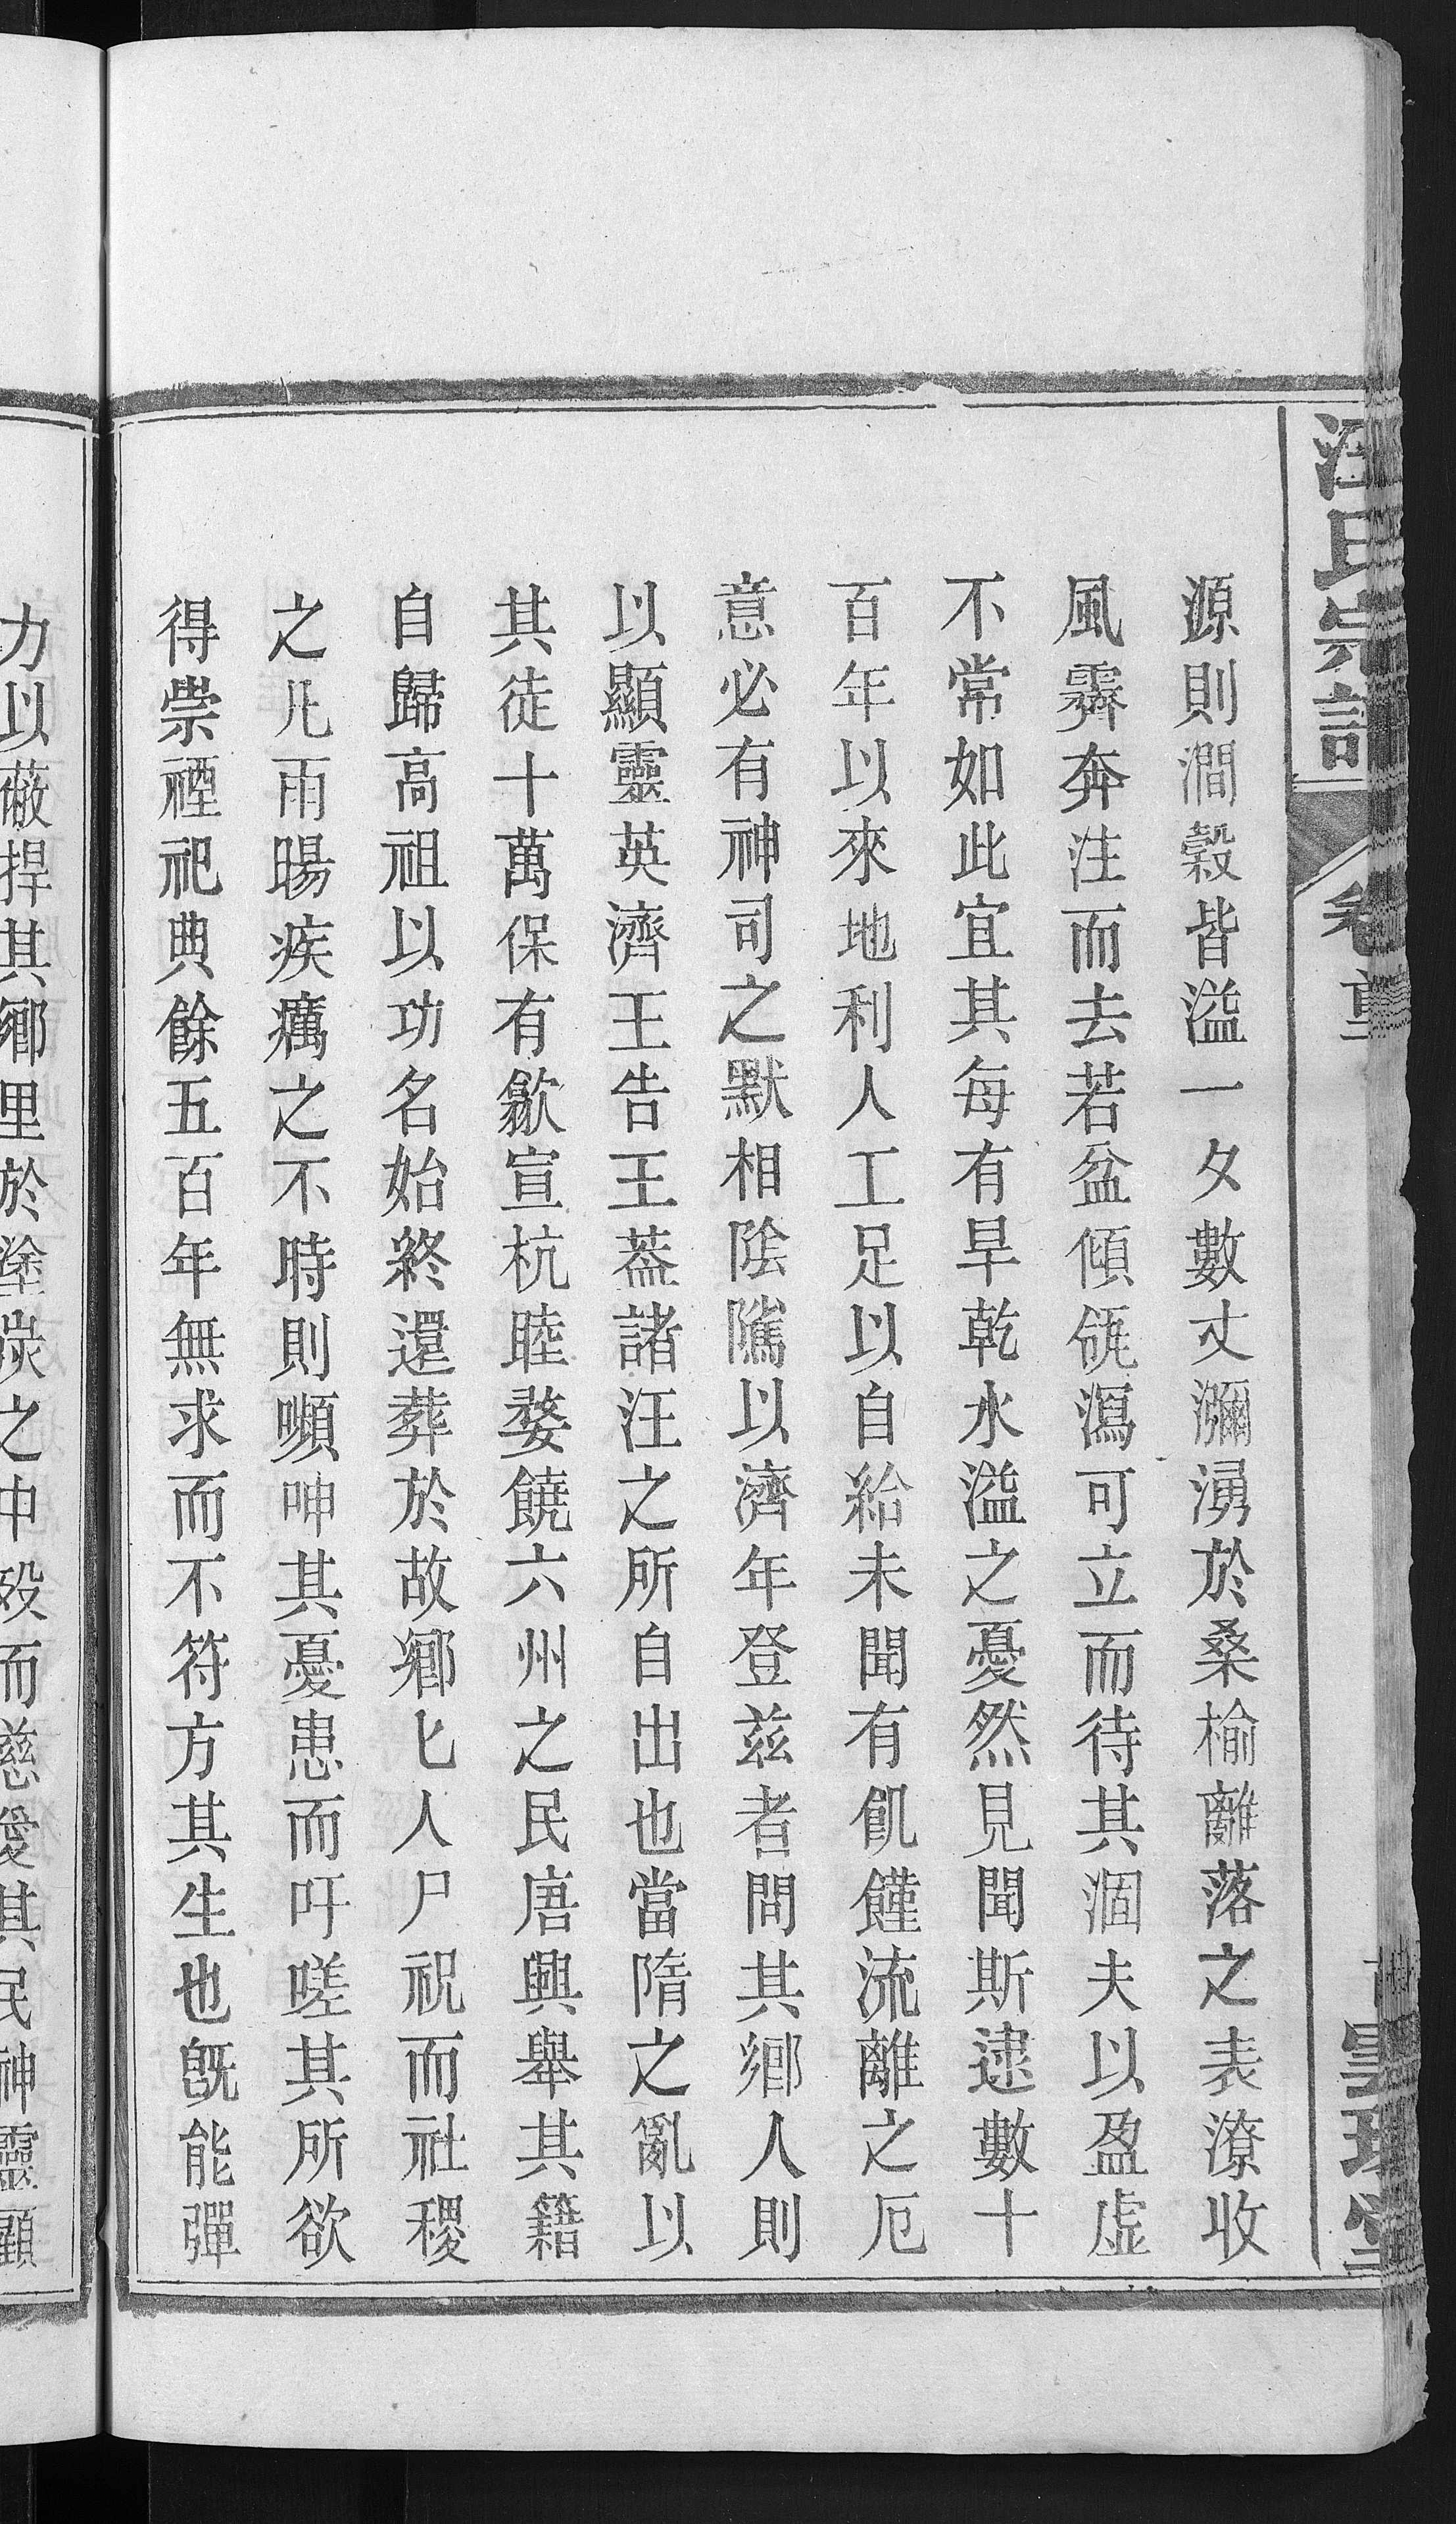 汪氏宗譜
卷
源則澗縠皆溢一夕數丈瀰湧於桑榆離落之表潦收
風霽奔注而去若盆傾瓴瀉可立而待其涸夫以盈虛
不常如此宜其每有旱乾水溢之憂然見聞斯逮數十
百年以來地利人工足以自給未聞有飢饉流離之厄
意必有神司之默相陰隲以濟年登茲者問其鄉人則
以顯靈英濟王告王葢諸汪之所自出也當隋之亂以
其徒十萬保有歙宣杭睦婺饒六州之民唐興舉其籍
自歸高祖以功名始終還葬於故鄉匕人尸祝而社稷
之凡雨暘疾癘之不時則嚬呻其憂患而吁嗟其所欲
得祟禋祀典餘五百年無求而不符方其生也既能彈
力以蔽捍其鄉里於塗炭之中歿而慈愛其民神靈顧